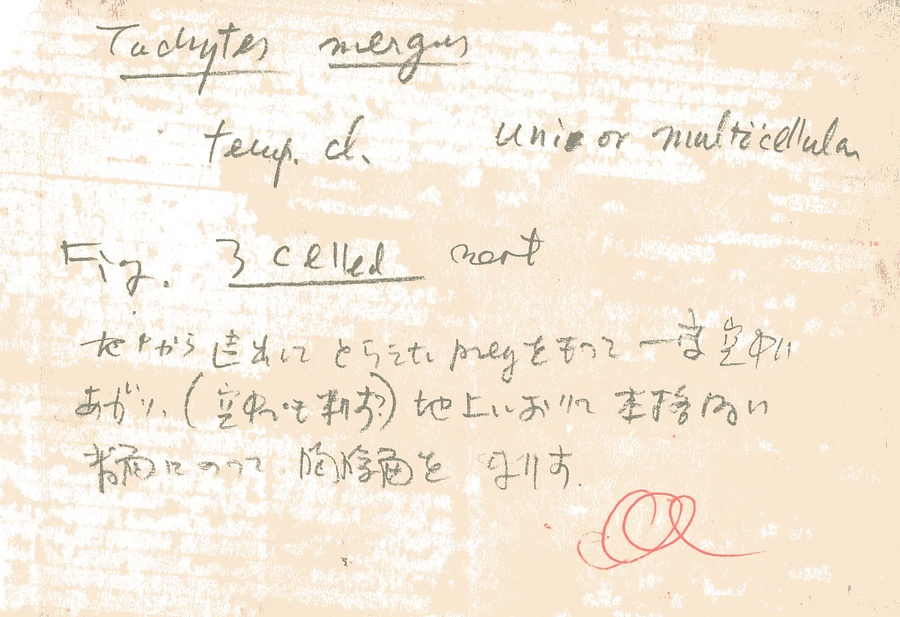 Tachytes mergus
temp. cl. unic or multicellular
Fig. 3 celled nest
地中から 出して とらえた preyをもって 一度 空中に
あがり、(空中でも刺す?) 地上におりて
背面にのって 胸腹面を